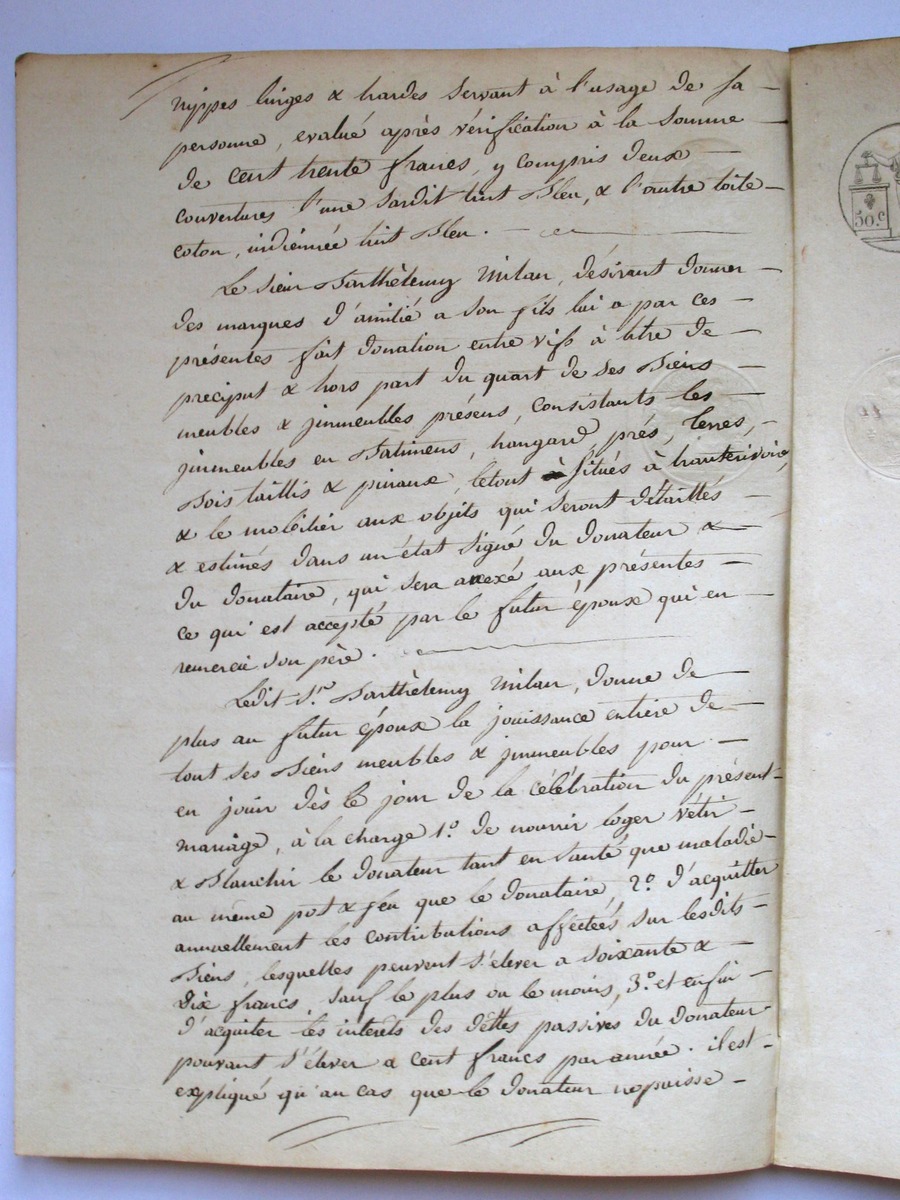 nippes linges & hardes servant à l'usage de sa
personne, evalué après vérification à la somme
de cent trente francs, y compris deux
couvertures l'une sardit tint bleu, & l'autre toile
coton, indiennée tint bleu.
Le sieur Barthèlemy Milan, désirant donner
des marques d'amitié a son fils lui a par ces
présentes fait donation entre vifs à titre de
preciput & hors part du quart de ses biens
meubles & jmmeubles présens, consistants les
jmmeubles en batimens, hangard, prés, terres,
bois taillis & pinaux, letout situés à hauterivoire,
& le mobilier aux objets qui seront détaillés
& estimés dans un état signé du donateur &
du donataire, qui sera anexé aux présentes
ce qui est accepté par le futur époux qui en
remercie son père.
Ledit s.r Barthèlemy Milan, donne de
plus au futur époux la jouissance entière de
tout ses biens meubles & jmmeubles pour
en jouir dès le jour de la célébration du présent
mariage, à la charge 1.o de nourrir loger vétir
& blanchir le donateur tant en santé que maladie
au même pot & feu que le donataire, 2.o d'acquitter
annuellement les contributions afféctées sur lesdits
biens, lesquelles peuvent s'élever a soixante &
dix francs, sauf le plus ou le moins, 3.o et enfin
d'acquiter les interêts des dettes passives du donateur
pouvant s'élever a cent francs par année. il est
expliqué qu'au cas que le donateur nepuisse
50.c